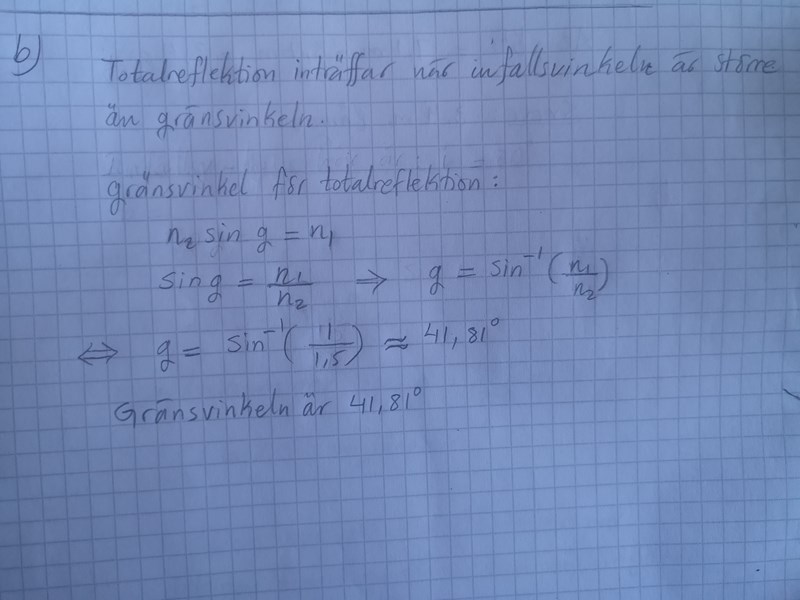 b) Totalreflektion inträffar när infallsvinkeln är större
än gränsvinkeln.
gränsvinkel för totalreflektion:
n₂ sin g = n₁
sin g = n₁/n₂ ⇒ g = sin⁻¹(n₁/n₂)
⇔ g = sin⁻¹(1/1,5) ≈ 41,81°
Gränsvinkeln är 41,81°